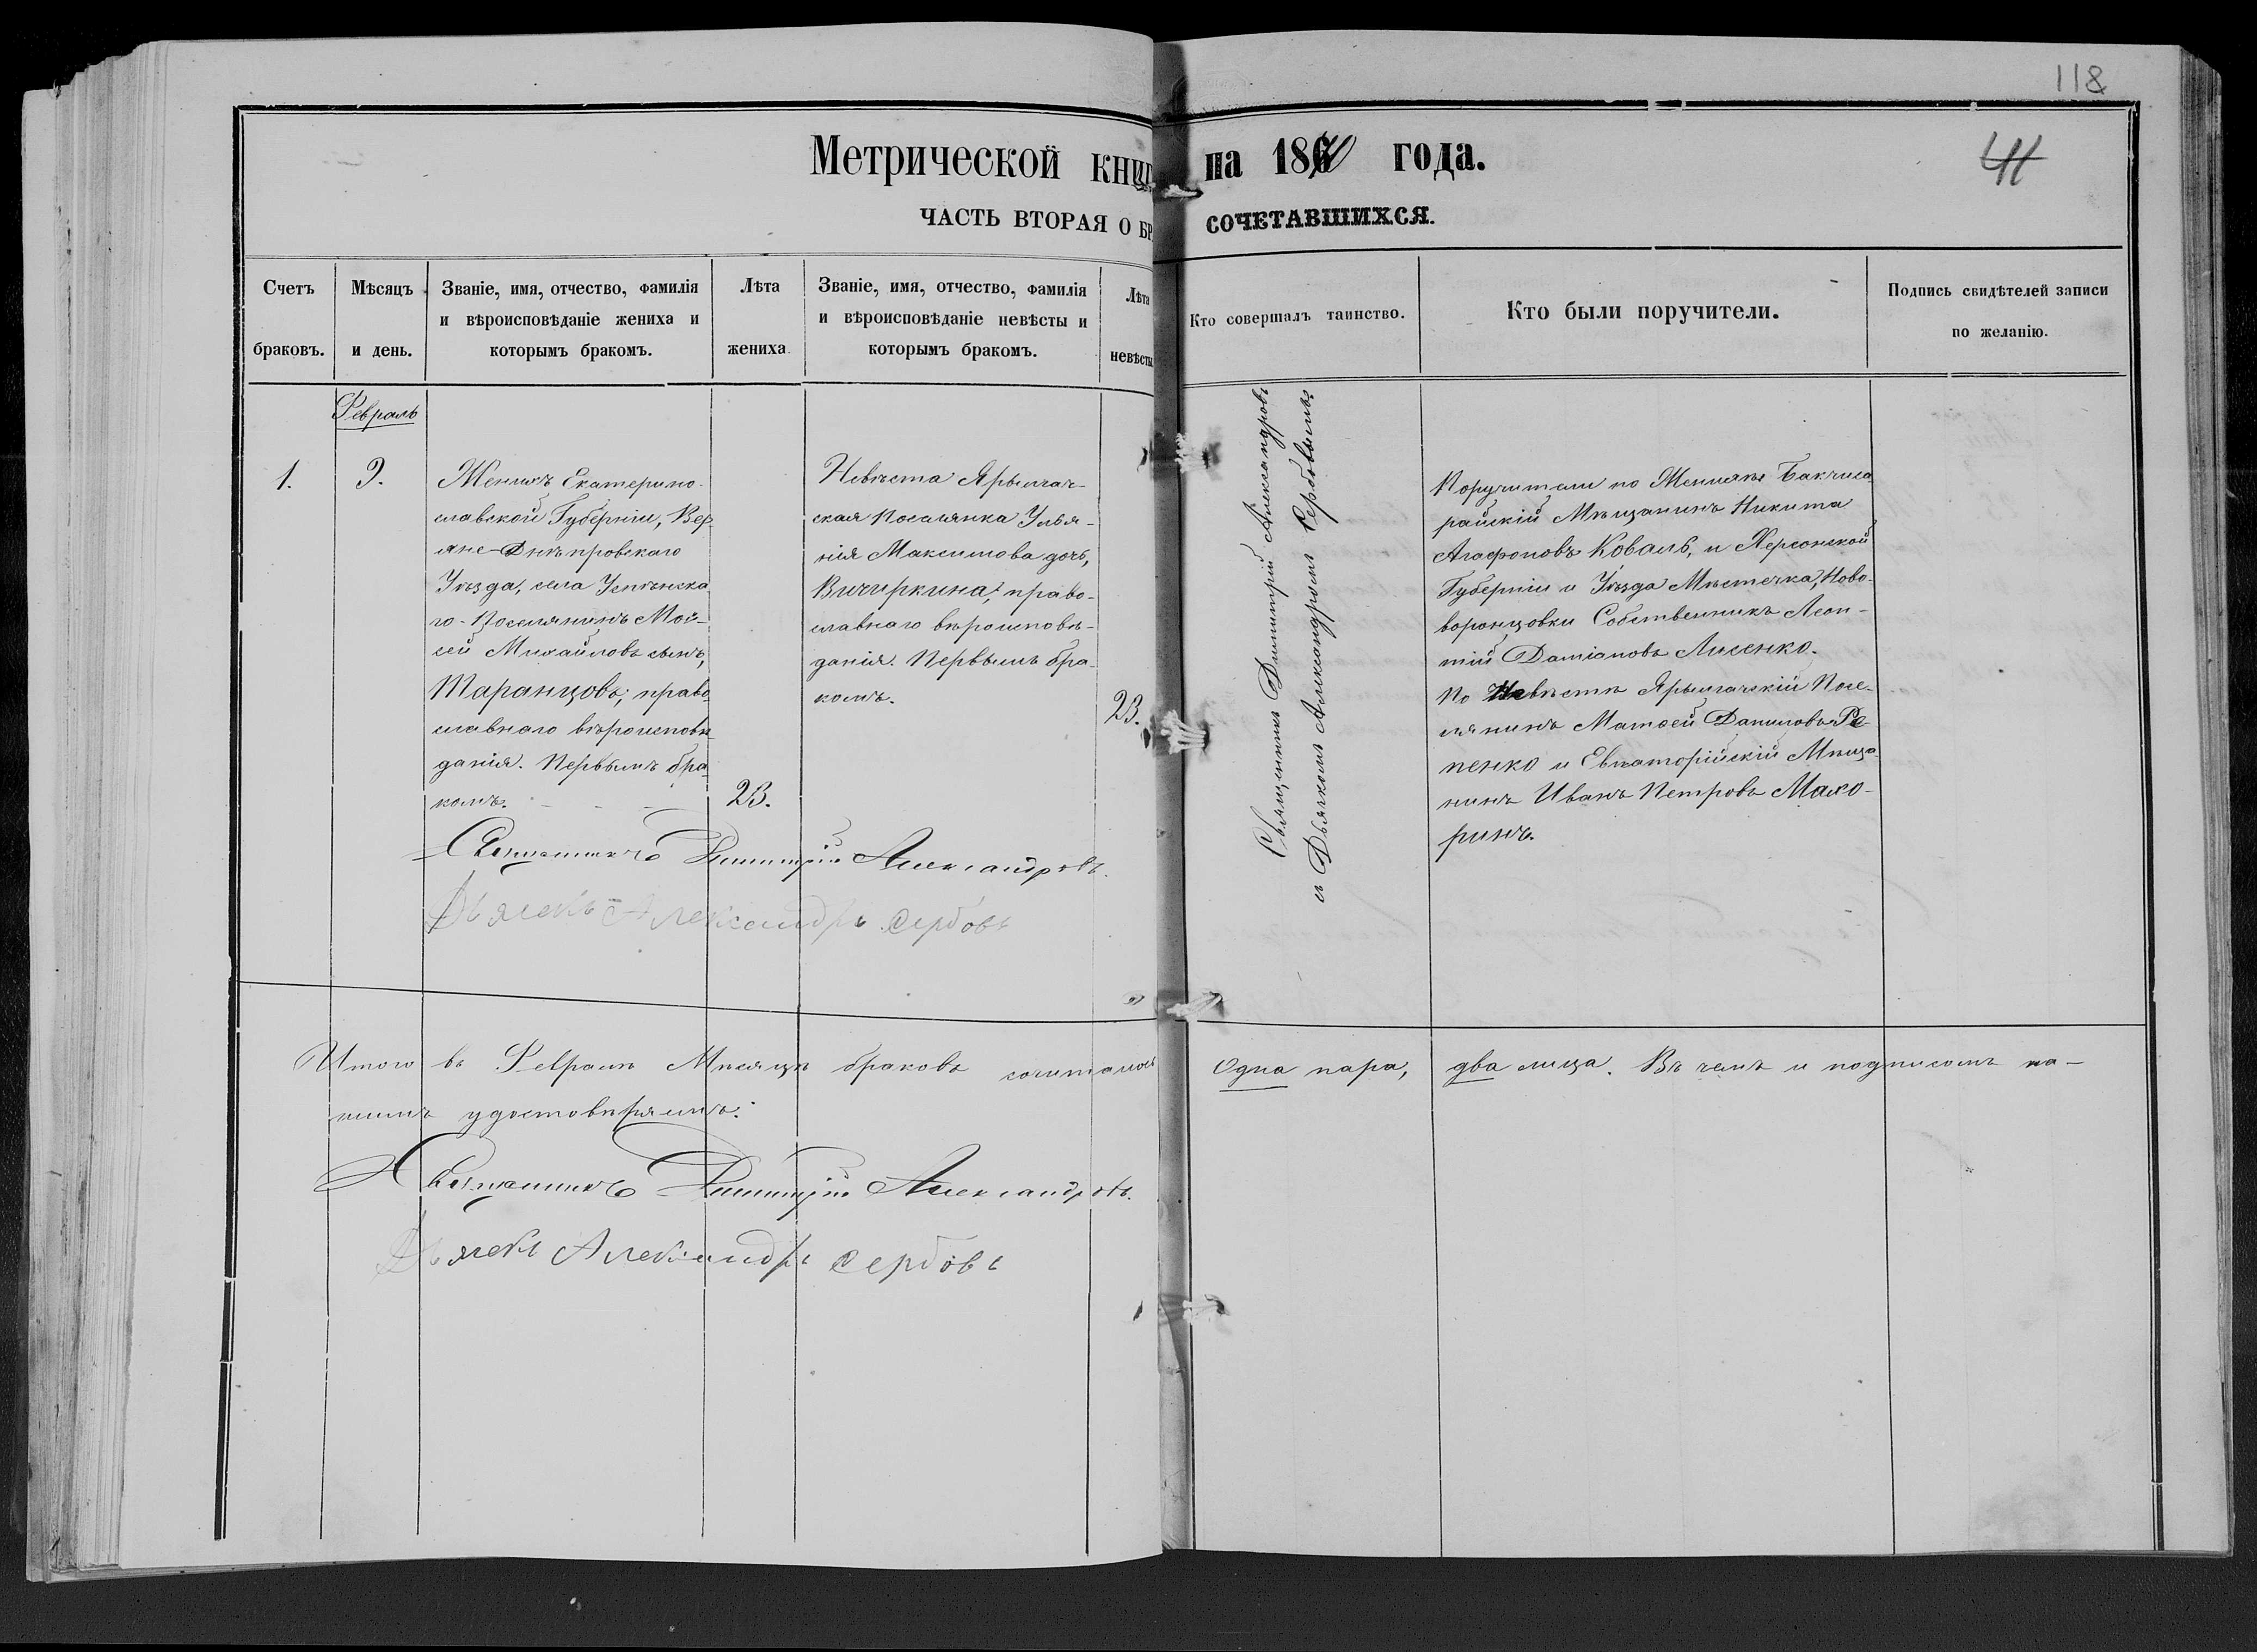 118
41
Метрической книг на 1870 года.
ЧАСТЬ ВТОРАЯ О БР СОЧЕТАВШИХСЯ.
Счетъ браковъ.
Мѣсяцъ и день.
Званіе, имя, отчество, фамилія
и вѣроисповѣданіе жениха и
которымъ бракомъ.
Лѣта
жениха
Званіе, имя, отчество, фамилія
и вѣроисповѣданіе невѣсты и
которымъ бракомъ.
Лѣта
невѣсты
Кто совершалъ таинство.
Кто были поручители.
Подпись свидѣтелей записи
по желанію.
Февраль
1.
9.
Женихъ Екатерино-
славской Губерніи, Вер
хне-Днѣпровскаго
Уѣзда, села Успѣнска
го-Поселянинъ Мой-
сей Михайловъ сынъ,
Таранцовъ, право
славнаго вѣроисповѣ
данія. Первымъ бра-
комъ.
23.
Невѣста Ярылгач-
ская Поселянка Улья-
нія Максимова дочь,
Вичиркина, право-
славнаго вѣроисповѣ-
данія. Первымъ бра-
комъ.
23.
Священникъ Димитрій Александровъ
съ Дьячкомъ Александромъ Сербовымъ
Поручители по Женихѣ Бакчиса
райскій Мѣщанинъ Никита
Агафоновъ Коваль, и Херсонской
Губерніи и Уѣзда Мѣстечка, Ново-
воронцовки Собственникъ Леон-
тій Даміановъ Лисенко.
По Невѣстѣ Ярылгачскій Посе-
лянинъ Матѳей Даниловъ Ре-
пенко и Евпаторійскій Мѣща-
нинъ Иванъ Петровъ Мако-
ринъ.
Священникъ Димитрій Александровъ.
Дьячекъ Александръ Сербовъ
Итого въ Февралѣ Мѣсяцѣ браковъ сочиталось Одна пара, два лица. Въ чемъ и подписомъ на-
шимъ удостовѣряемъ.
Священникъ Димитрій Александровъ.
Дьячекъ Александръ Сербовъ